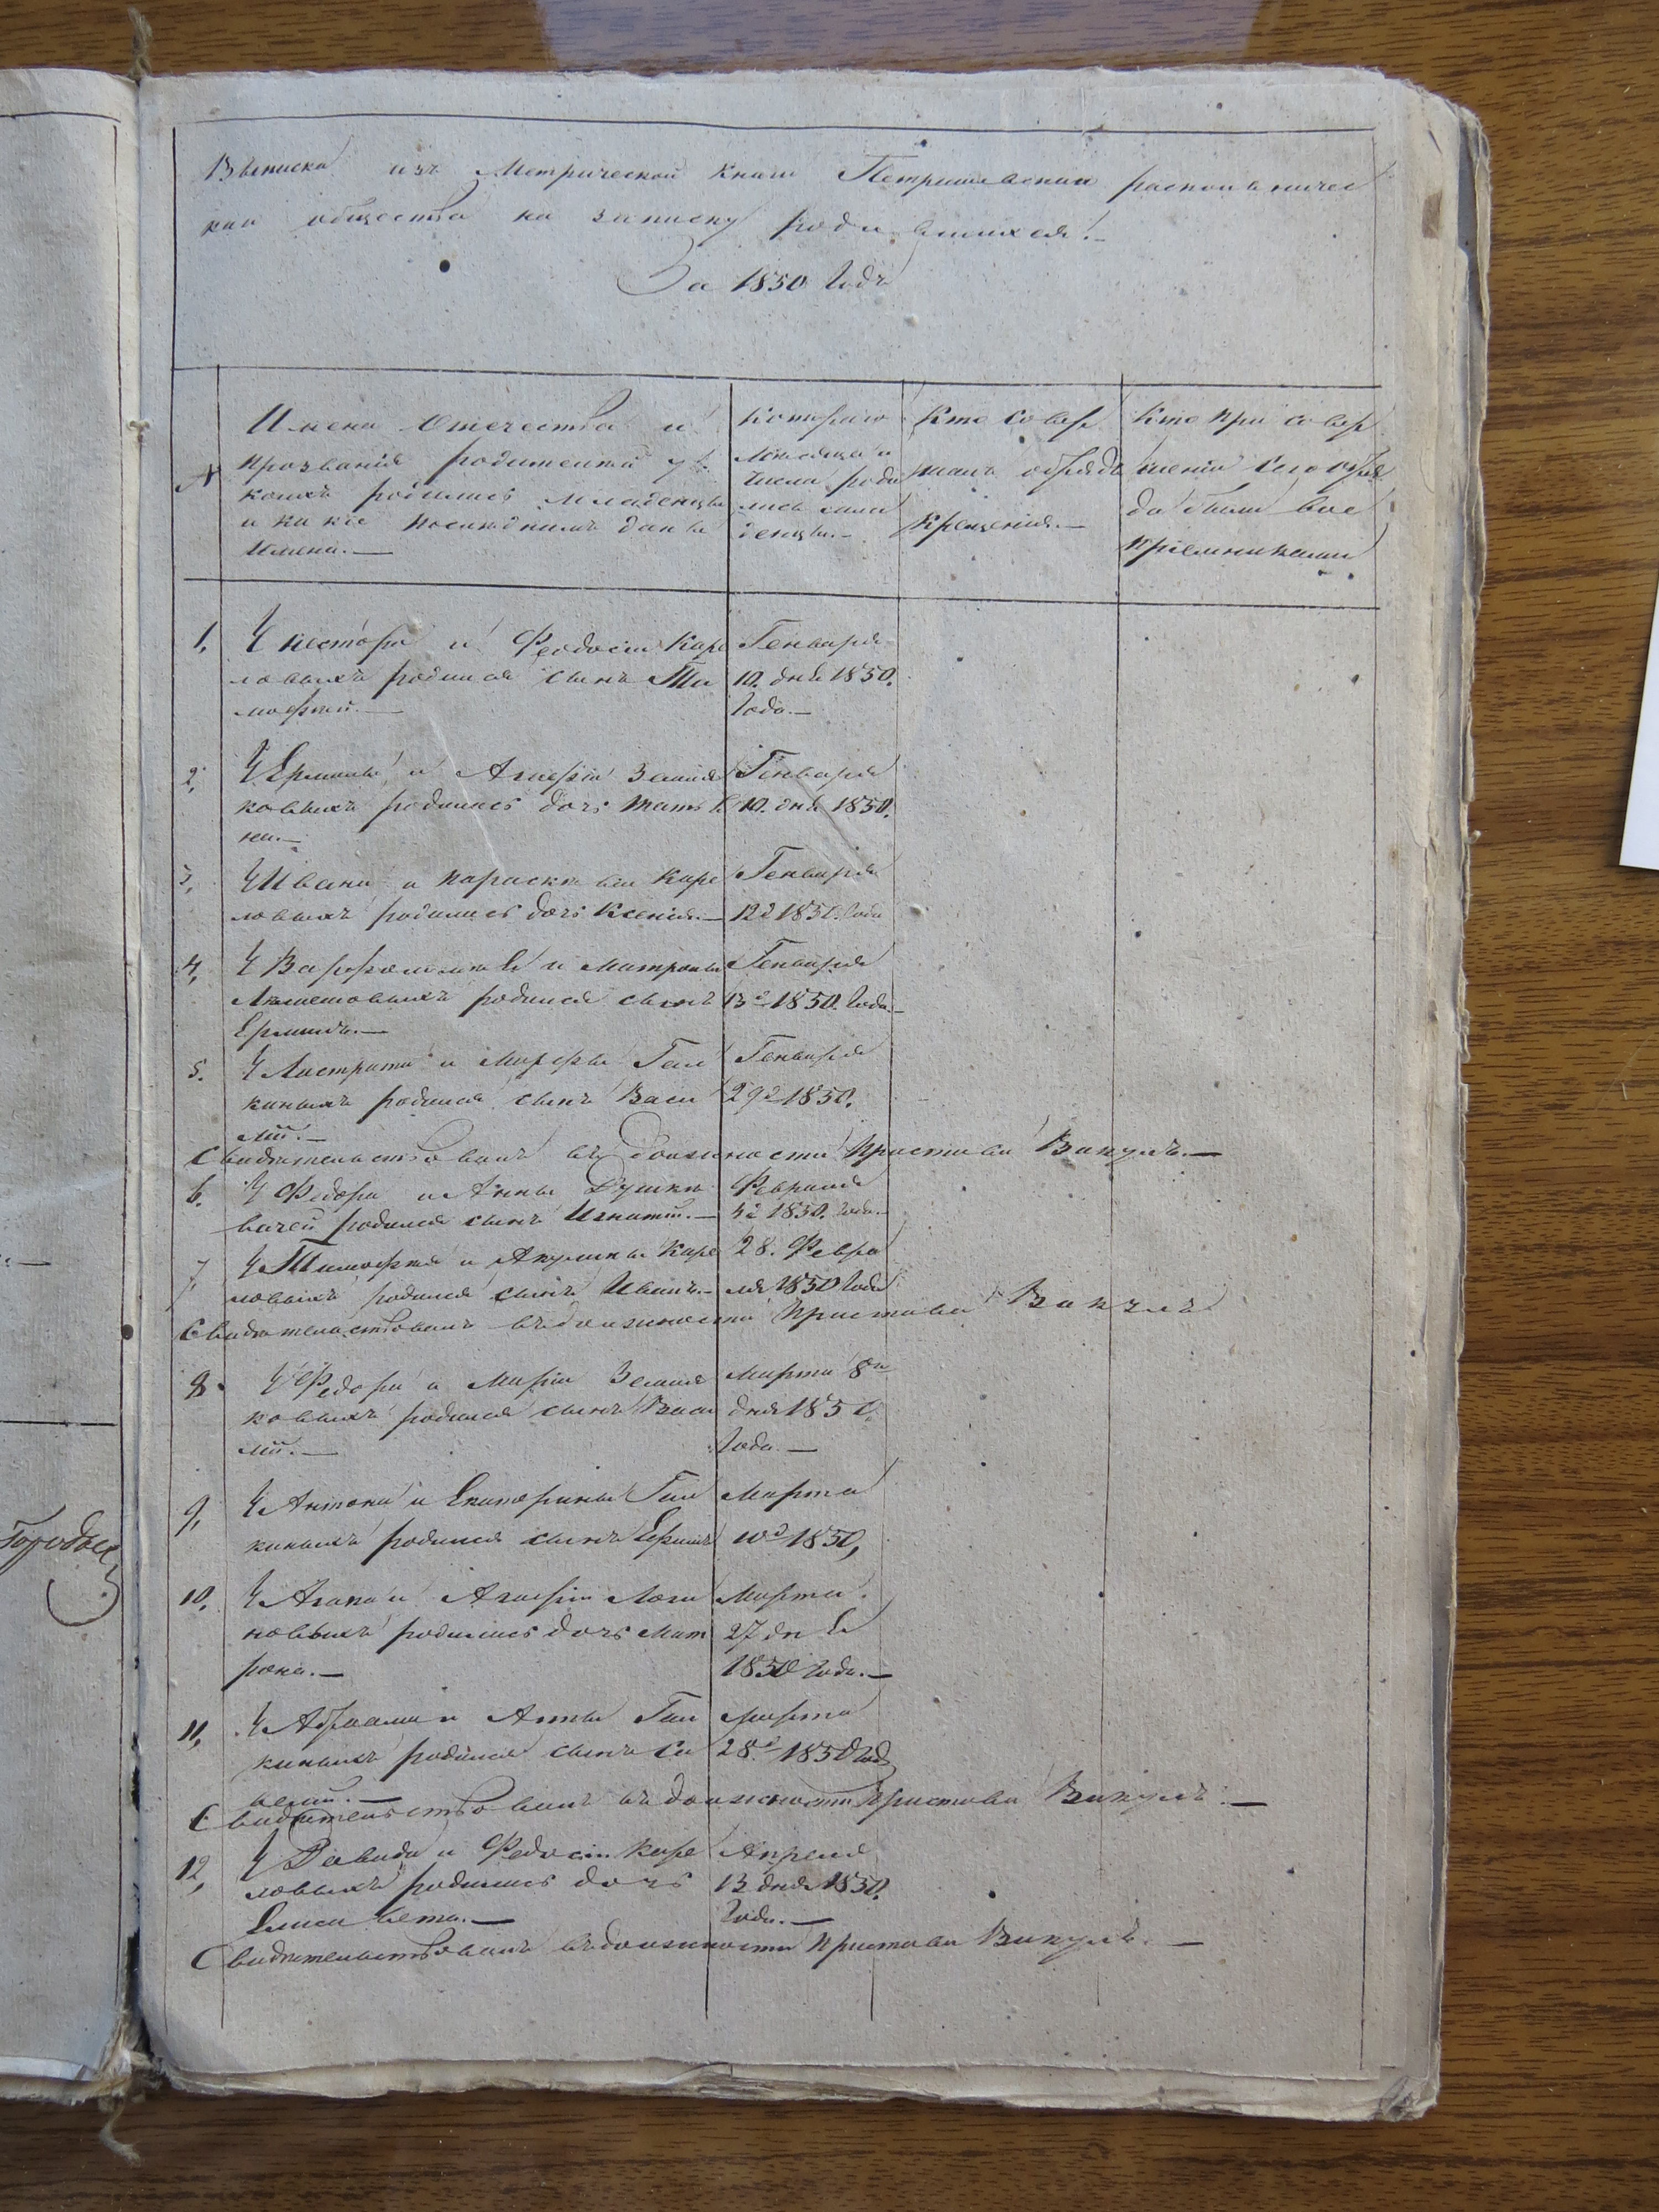 Выписка изъ Метрической книги Петрашевскаи раскольничес
каи общества на записку родившихся.—
За 1850 Годъ
№
Имена Отечества и
прозвания родителей у
коихъ родились младенцы
и какие последнимъ даны
имена.—
Котораго
месяца и
числа роди
лись мла
денцы.—
Кто совер
шалъ обрядъ
крещения.—
Кто при совер
шении сего обря
да были вос
приемниками
1, У Нестора и Феодосии Каре
ловыхъ родился сынъ Ти
мофей.—
Генваря
10. дня 1850.
Года.—
2, У Ермилы и Агафии Земля
ковыхъ родилась дочь Татья
на.—
Генваря
10. дня 1850.
3, У Ивана и Параскевы Каре
ловыхъ родилась дочь Ксения.—
Генваря
12 д 1850. Года
4, У Варфоломея и Матроны
родился сынъ
Ермилъ.—
Генваря
13 д 1850. Года.—
5. У Листрата и Марфы Гал
киныхъ родился сынъ Васи
лий.—
Генваря
29 д 1850.
Свидетельствовалъ въ должности Пристава Викулъ.—
6. У Федора и Анны
родился сынъ Игнатий.—
Февраля
4 д 1850. Года.—
7, У Тимофея и Акулины Каре
ловыхъ родился сынъ Иванъ.—
28. Февра
ля 1850 Года
Свидетельствовалъ въ должности Пристава Викулъ
8. У Федора и Марии Земля
ковыхъ родился сынъ Васи
лий.—
Марта 8го
дня 1850.
Года.—
9, У Антона и Екатерины Гал
киныхъ родился сынъ Ефимъ
Марта
10 д 1850,
10, У Агапа и Агафии Логи
новыхъ родилась дочь Мат
рона.—
Марта.
27 дня
1850 Года.—
11, У Абраама и Анны Гал
киныхъ родился сынъ Са
велий.—
Марта
28 д 1850 Год
Свидетельствовалъ въ должности Пристава Викулъ.—
12, У Давида и Федосии Каре
ловыхъ родилась дочь
Елисавета.—
Апреля
13 дня 1850.
Года.—
Свидетельствовалъ въ должности Пристава Викулъ.—